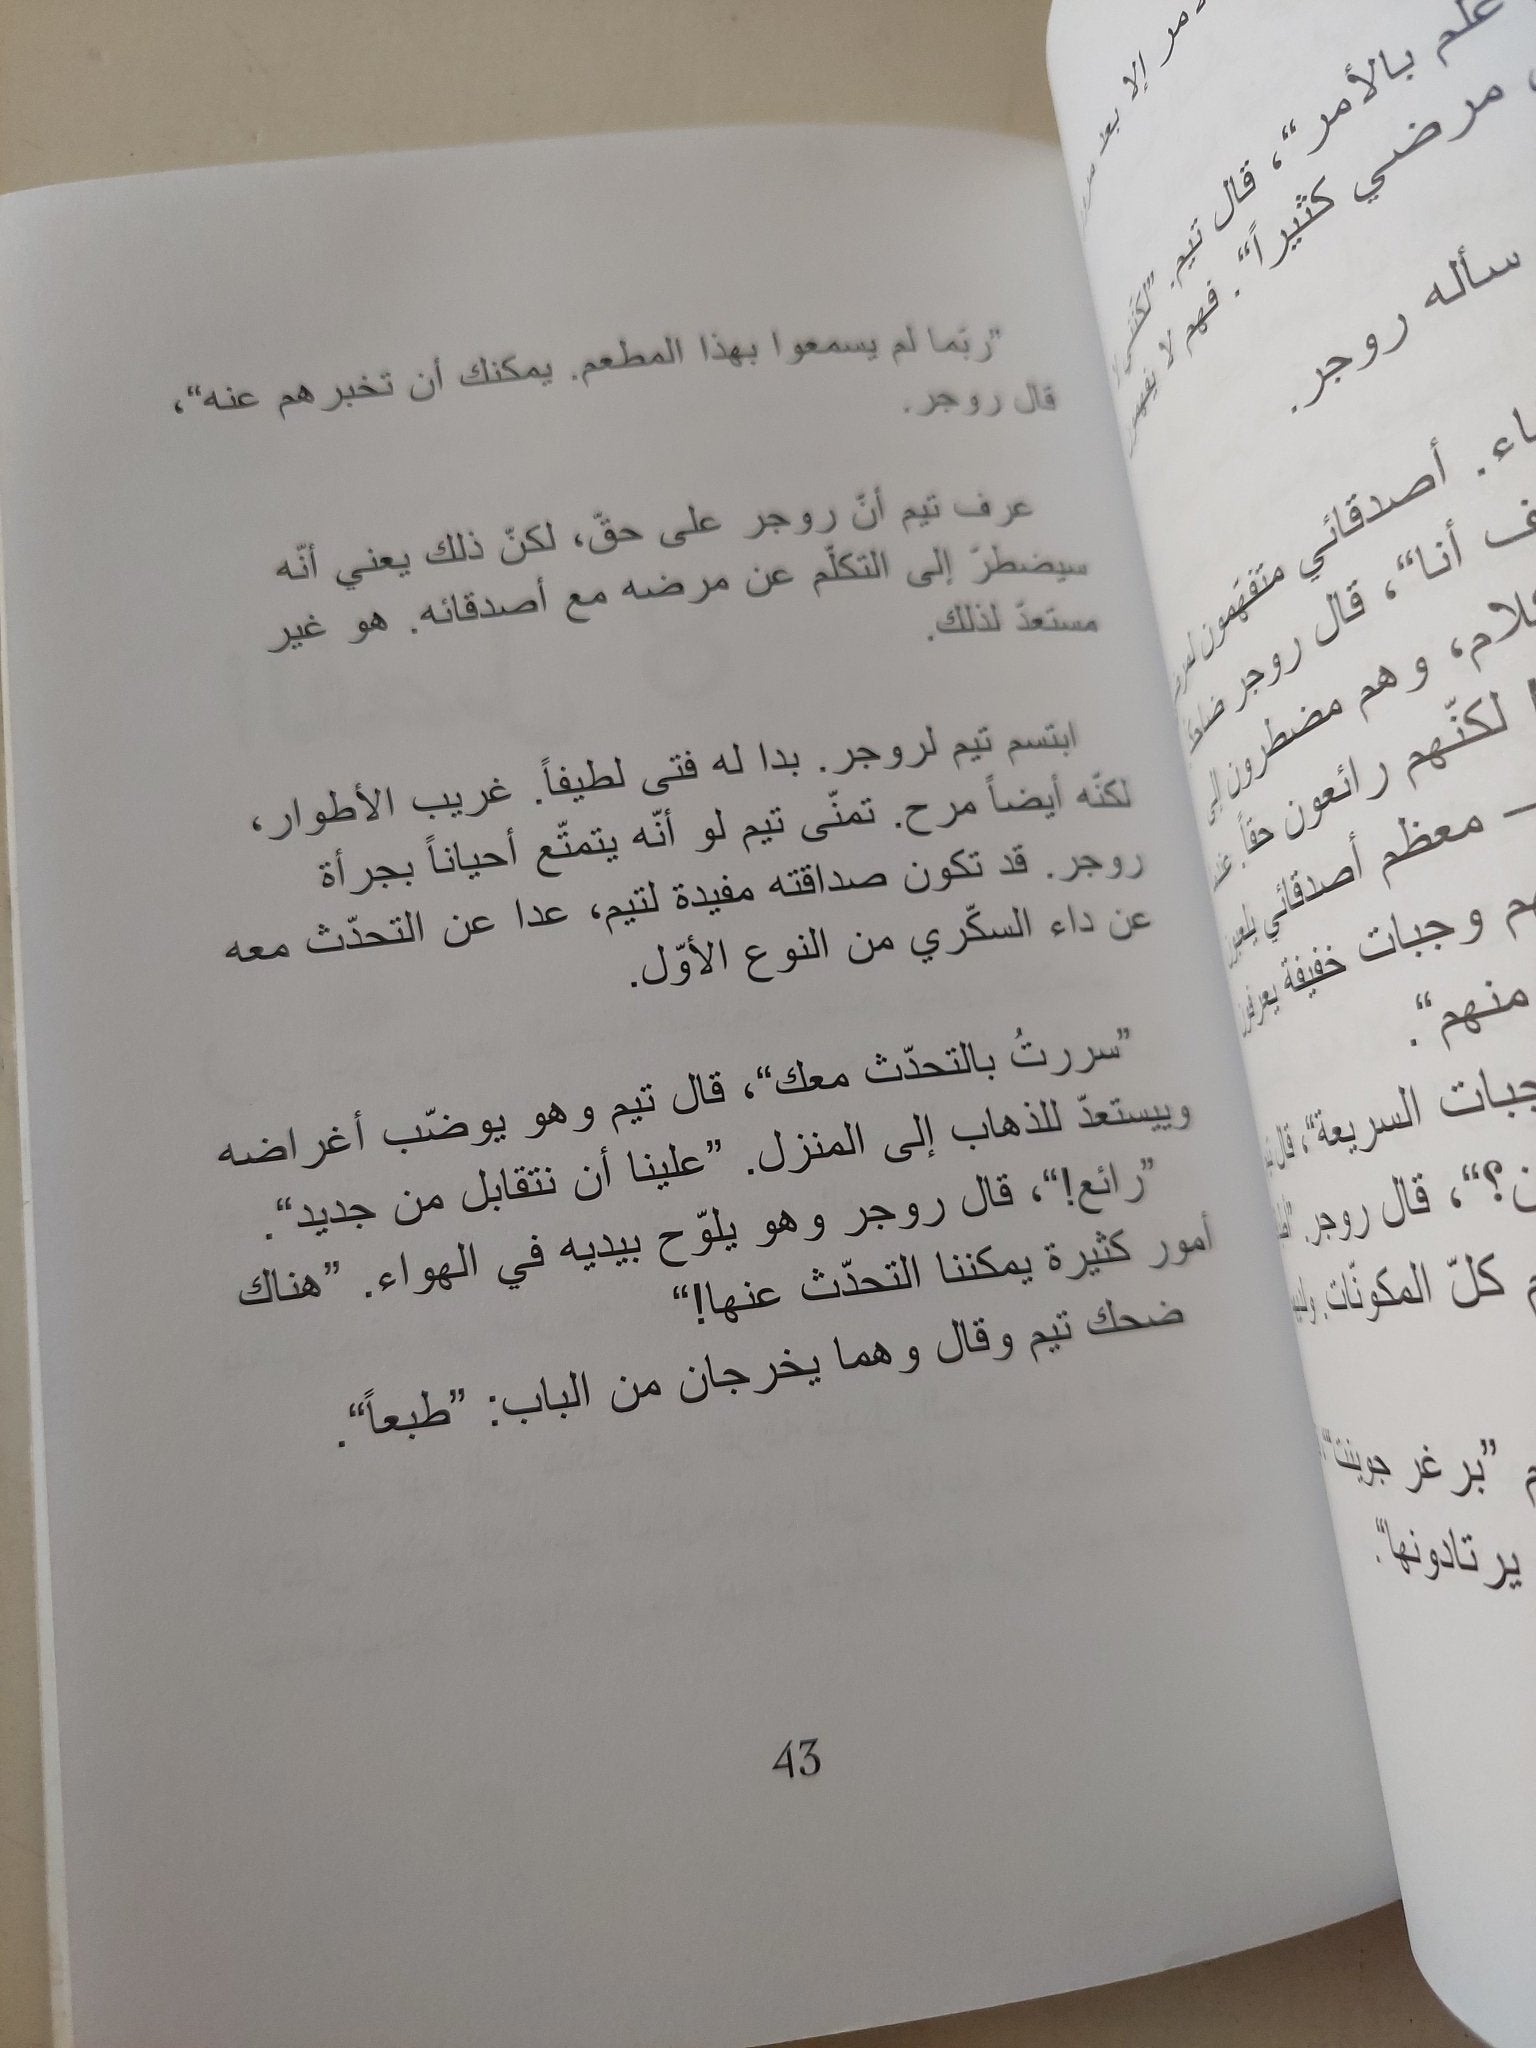 ”ربّما لم يسمعوا بهذا المطعم. يمكنك أن تخبرهم عنه“،
قال روجر.
عرف تيم أنّ روجر على حقّ، لكنّ ذلك يعني أنّه
سيضطرّ إلى التكلّم عن مرضه مع أصدقائه. هو غير
مستعدّ لذلك.
ابتسم تيم لروجر. بدا له فتى لطيفاً. غريب الأطوار،
لكنّه أيضاً مرح. تمنّى تيم لو أنّه يتمتّع أحياناً بجرأة
روجر. قد تكون صداقته مفيدة لتيم، عدا عن التحدّث معه
عن داء السكّري من النوع الأوّل.
”سررتُ بالتحدّث معك“، قال تيم وهو يوضّب أغراضه
وييستعدّ للذهاب إلى المنزل. ”علينا أن نتقابل من جديد“.
”رائع!“، قال روجر وهو يلوّح بيديه في الهواء. ”هناك
أمور كثيرة يمكننا التحدّث عنها!“
ضحك تيم وقال وهما يخرجان من الباب: ”طبعاً“.
43
إلا بعد
علم بالأمر“، قال تيم. ”لكنّني لا
مرضي كثيراً“. فهم لا يفهمون
سأله روجر.
أصدقائي متفهّمون
أنا“، قال روجر
وهم مضطرون إلى
لكنّهم رائعون حقاً.
– معظم أصدقائي يلعبون
وجبات خفيفة يعرفون
منهم“.
السريعة“، قال
قال روجر.
كلّ المكونّات.
”برغر جوينت“
يرتادونها“.